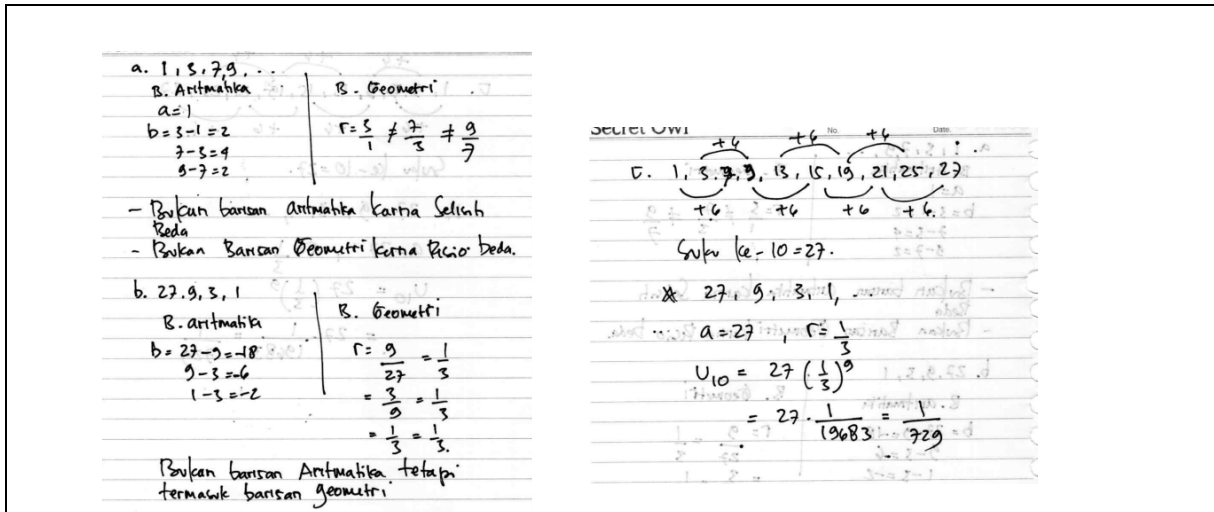 a. 1, 3, 7, 9, ...
B. Aritmatika
a = 1
b = 3 - 1 = 2
7 - 3 = 4
9 - 7 = 2
B. Geometri
r = 3/1 ≠ 7/3 ≠ 9/7
- Bukan barisan aritmatika karna Selisih
Beda
- Bukan Barisan Geometri karna Rasio beda.
b. 27, 9, 3, 1
B. aritmatika
b = 27 - 9 = -18
9 - 3 = -6
1 - 3 = -2
B. Geometri
r = 9/27 = 1/3
= 3/9 = 1/3
= 1/3 = 1/3.
Bukan barisan Aritmatika tetapi
termasuk barisan geometri
Secret Owl
No.
Date.
+6 +6 +6
c. 1, 3, 7, 9, 13, 15, 19, 21, 25, 27
+6 +6 +6 +6
Suku ke-10 = 27.
27, 9, 3, 1, ...
a = 27, r = 1/3
U10 = 27 (1/3)^9
= 27 . 1/19683 = 1/729